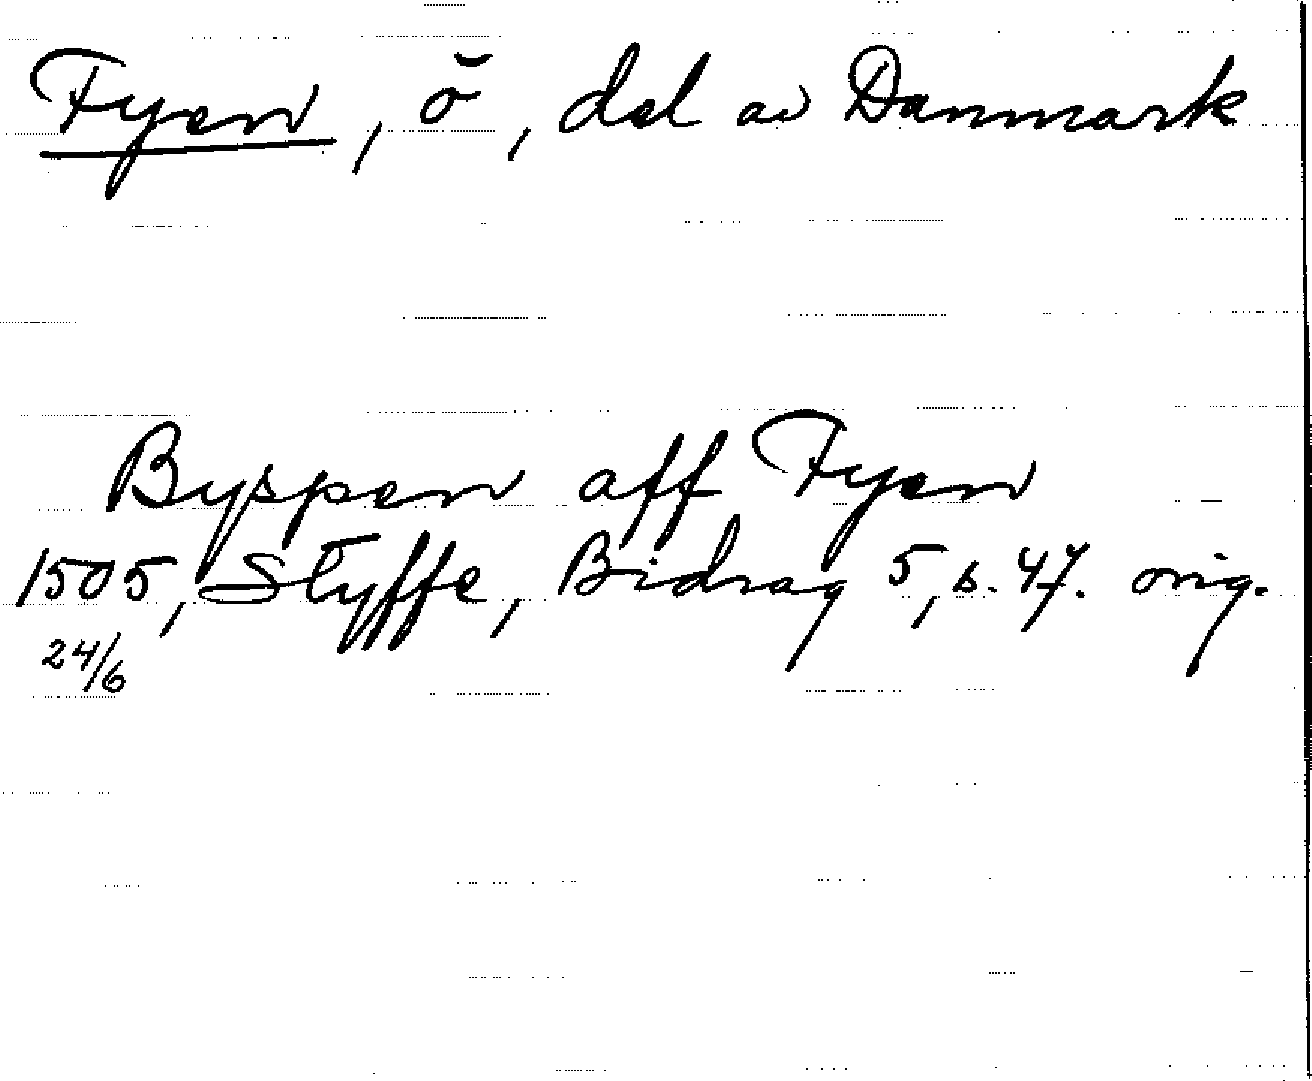 Fyen, ö, del av Danmark
Byspen aff Fyen
1505, Styffe, Bidrag 5, s. 47. orig.
24/6